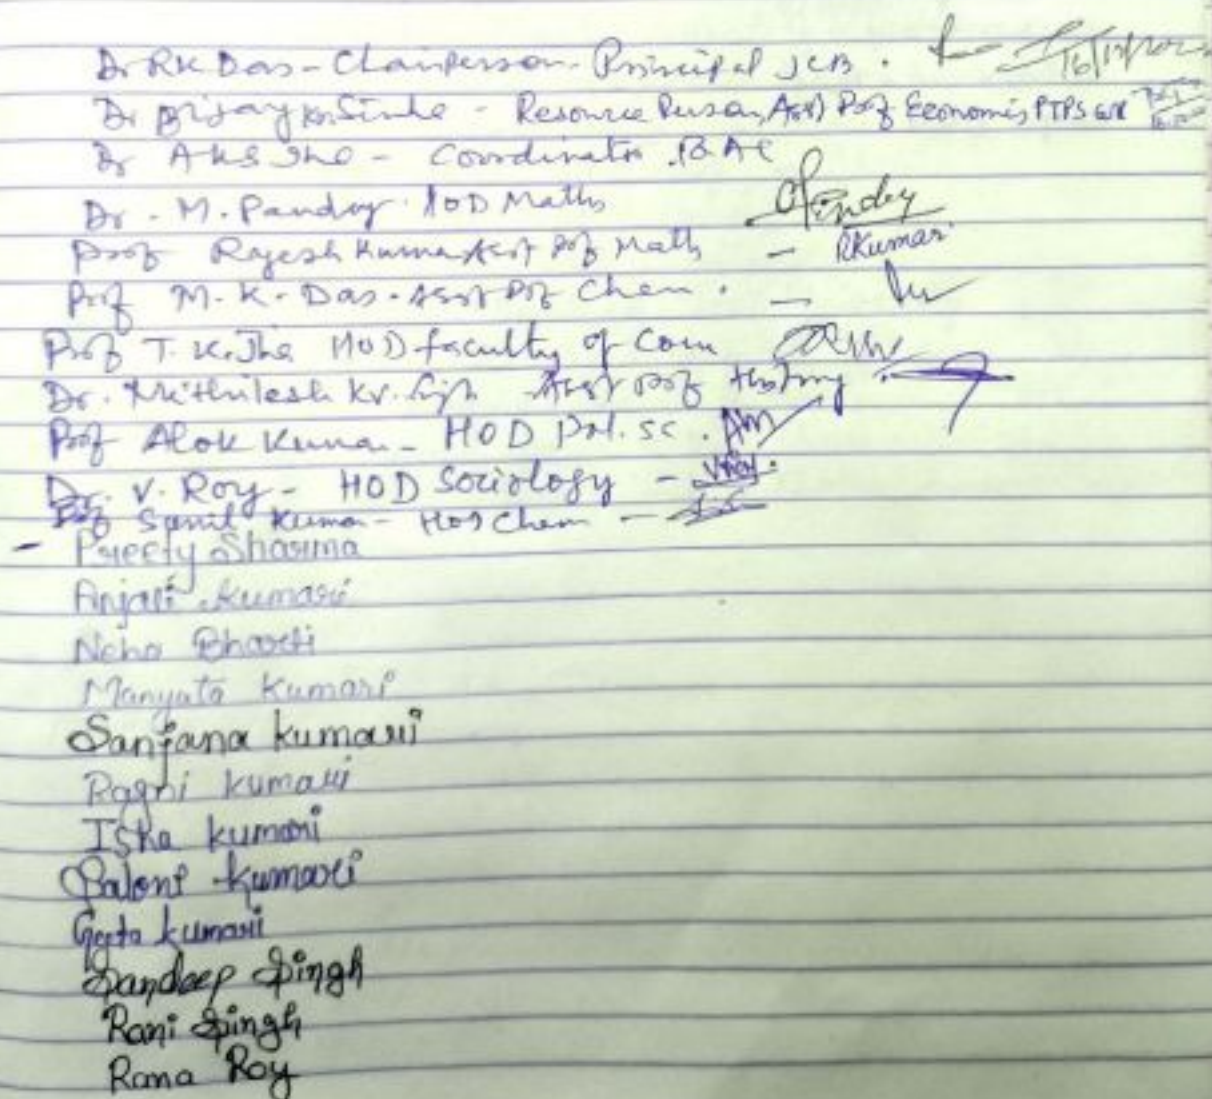 Dr RK Das - Chairperson - Principal JCB.
Dr Bijay Kr. Sinha - Resource Person, Asst Prof Economics, PTPS
Dr A K S Jha - Coordinator
Dr. M. Pandey. HOD Maths Pandey
Prof Rajesh Kumar Asst Prof Math - RKumar
Prof M. K. Das. Asst Prof Chem. -
Prof T. K. Jha HOD faculty of Com
Dr. Mithilesh Kr. Singh Asst Prof History.
Prof Alok Kumar - HOD Pol. Sc.
Dr. V. Roy - HOD Sociology - VRoy.
Prof Sunil Kumar - HOD Chem -
- Preety Sharma
Anjali Kumari
Neha Bharti
Manyata Kumari
Sanjana kumari
Ragni kumari
Isha kumari
Saloni kumari
Geeta kumari
Sandeep Singh
Rani Singh
Rana Roy